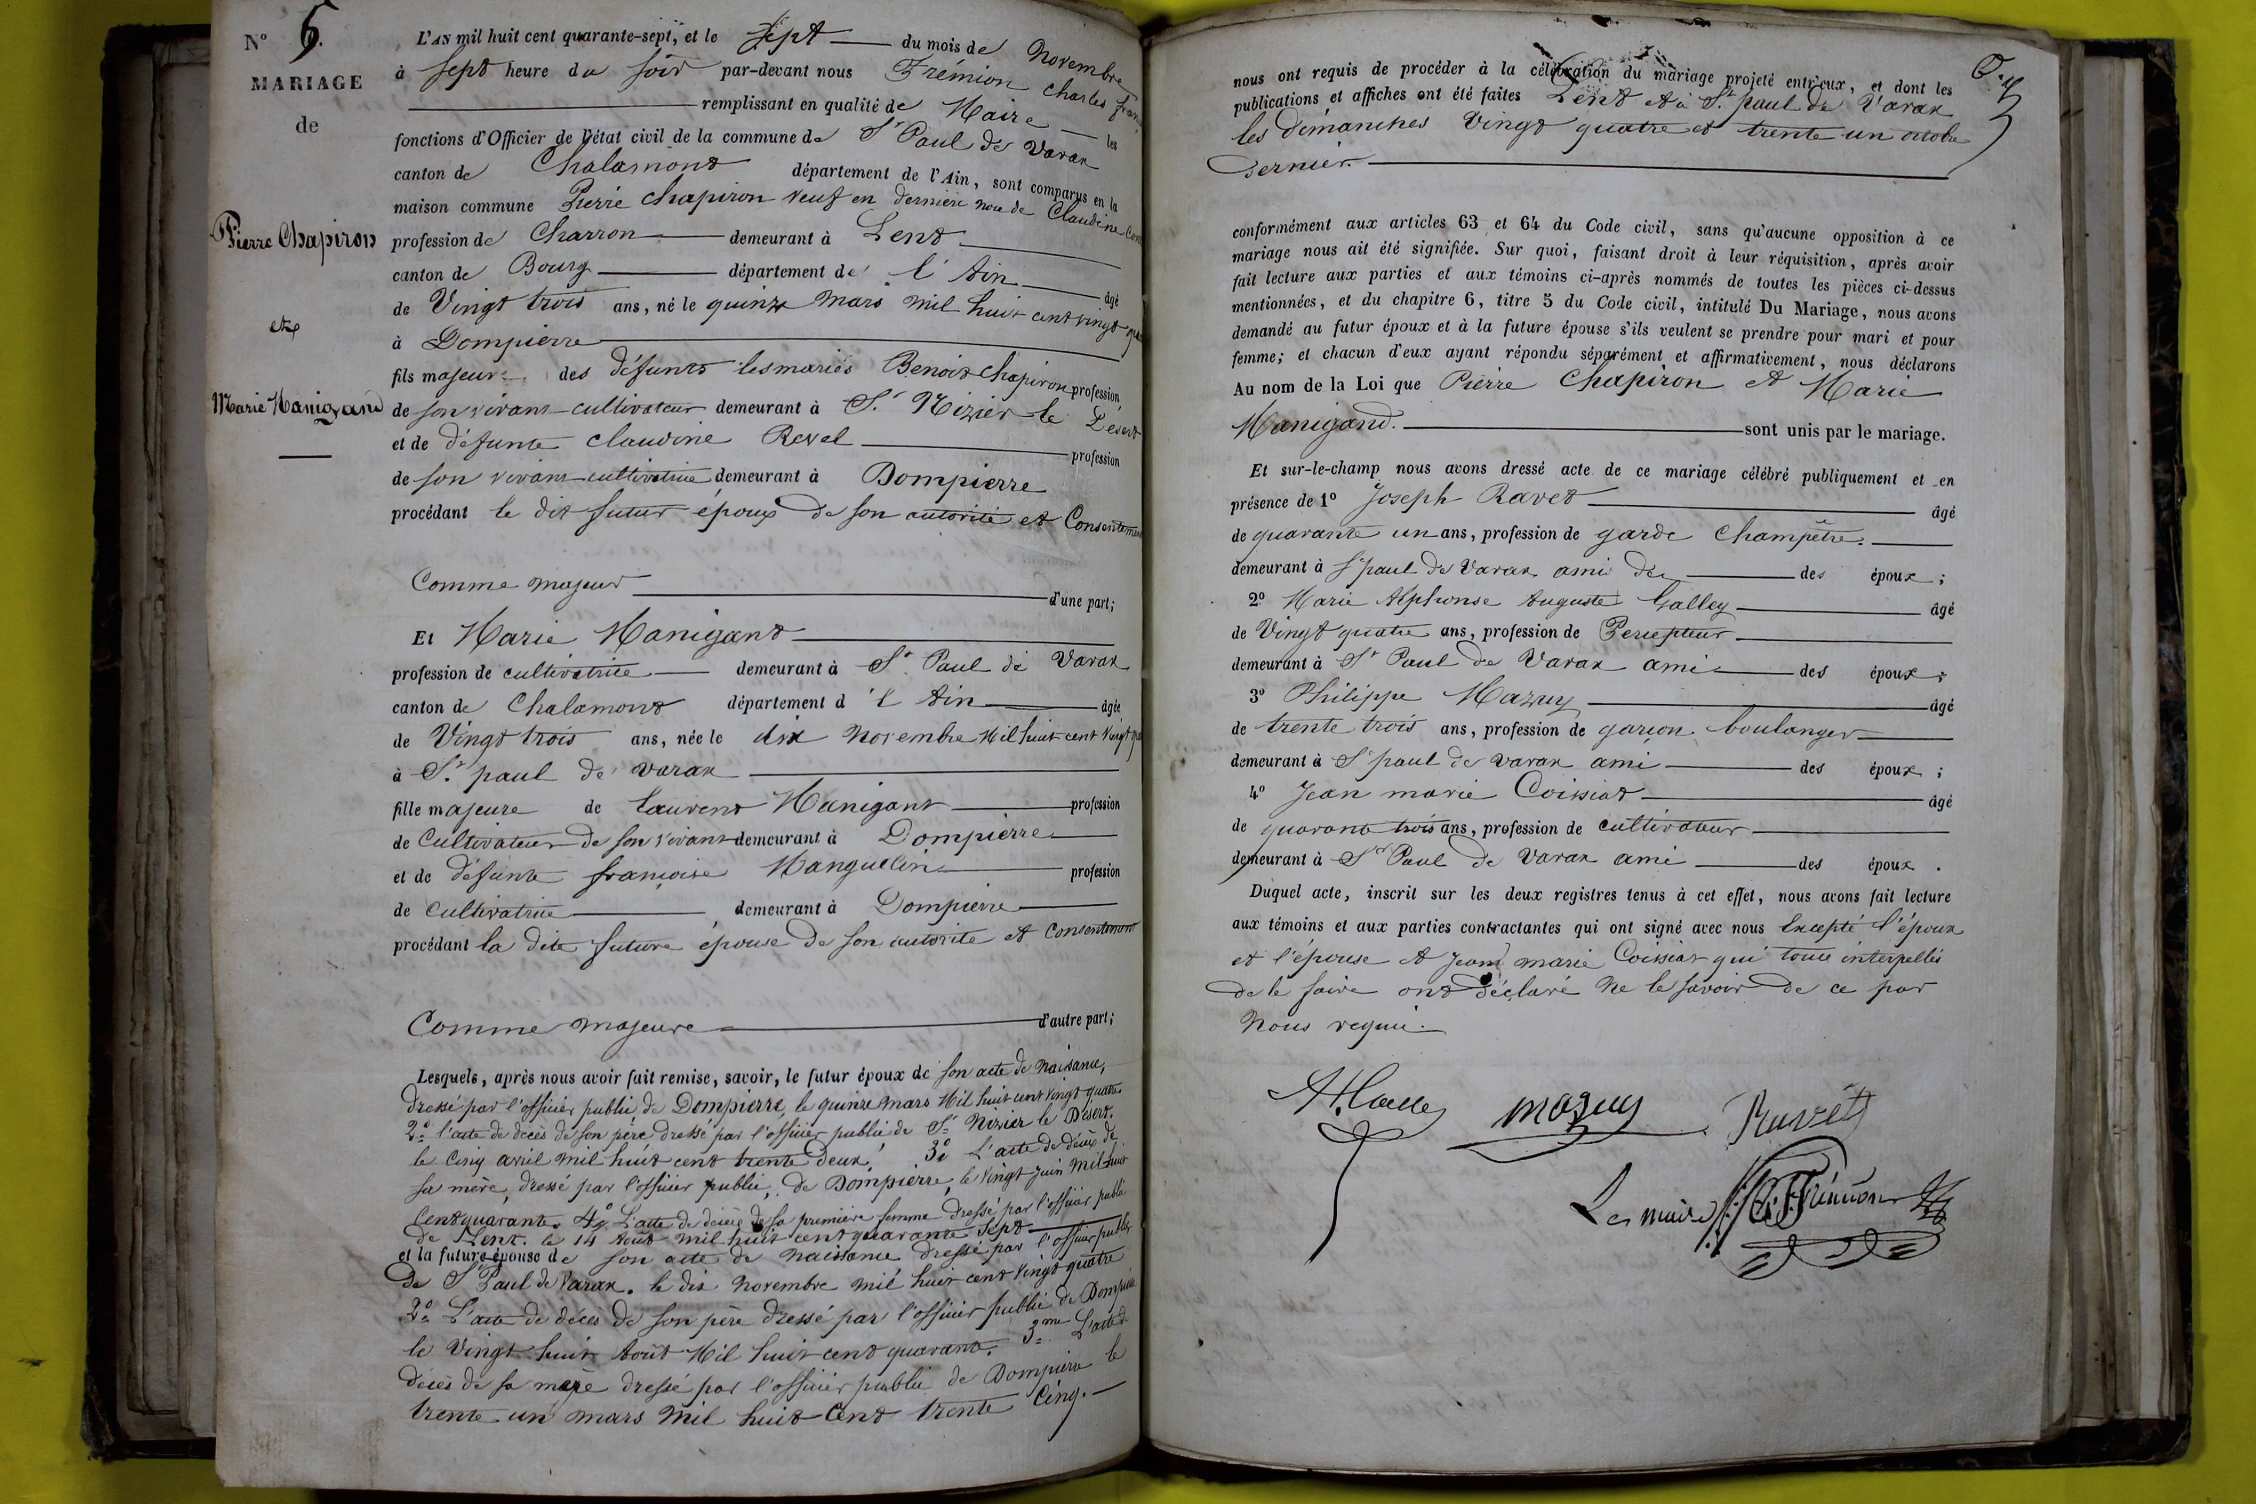 N° 6.
MARIAGE
de
Pierre Chapiron
et
Marie Manigand
L'AN mil huit cent quarante-sept, et le sept du mois de Novembre
à sept heure du soir par-devant nous Frémion Charles
remplissant en qualité de Maire les
fonctions d'Officier de l'état civil de la commune de St Paul de Varax
canton de Chalamont département de l'Ain, sont comparus en la
maison commune Pierre Chapiron veuf en dernière noce de Claudine
profession de Charron demeurant à Lent
canton de Bourg département de l'Ain âgé
de Vingt trois ans, né le quinze Mars mil huit cent vingt
à Dompierre
fils majeur des défunts les mariés Benoit Chapiron profession
de son vivant cultivateur demeurant à St Nizier le Désert
et de défunte Claudine Revel profession
de son vivant cultivatrice demeurant à Dompierre
procédant le dit futur époux de son autorité et Consentement
Comme majeur d'une part;
Et Marie Manigant
profession de cultivatrice demeurant à St Paul de Varax
canton de Chalamont département d l'Ain âgée
de Vingt trois ans, née le dix Novembre Mil huit cent Vingt
à St paul de varax
fille majeure de Laurent Manigant profession
de Cultivateur de son vivant demeurant à Dompierre
et de défunte françoise Manguelin profession
de Cultivatrice demeurant à Dompierre
procédant la dite future épouse de son autorité et Consentement
Comme majeure d'autre part;
Lesquels, après nous avoir fait remise, savoir, le futur époux de son acte de Naissance,
dressé par l'officier public de Dompierre, le quinze Mars Mil huit cent vingt quatre
2° l'acte de décès de son père dressé par l'officier public de St Nizier le Désert.
le Cinq avril mil huit cent trente deux. 3° L'acte de décès de
sa mère, dressé par l'officier public, de Dompierre, le Vingt Juin Mil huit
Cent quarante. 4° L'acte de décès de sa première femme dressé par l'officier public
de Lent. le 14 Aout mil huit cent quarante sept
et la future épouse de son acte de naissance dressé par l'officier public
de St Paul de Varax. le dix Novembre mil huit cent Vingt quatre
2° L'acte de décès de son père dressé par l'officier public de Dompierre
le Vingt huit Août Mil huit cent quarante. 3me L'acte d
décès de sa mère dressé par l'officier public de Dompierre le
trente un mars Mil huit Cent trente Cinq.
nous ont requis de procéder à la célébration du mariage projeté entr'eux, et dont les
publications et affiches ont été faites Lent et à St paul de Varax
les dimanches Vingt quatre et trente un octobre
dernier.
conformément aux articles 63 et 64 du Code civil, sans qu'aucune opposition à ce
mariage nous ait été signifiée. Sur quoi, faisant droit à leur réquisition, après avoir
fait lecture aux parties et aux témoins ci-après nommés de toutes les pièces ci-dessus
mentionnées, et du chapitre 6, titre 5 du Code civil, intitulé Du Mariage, nous avons
demandé au futur époux et à la future épouse s'ils veulent se prendre pour mari et pour
femme; et chacun d'eux ayant répondu séparément et affirmativement, nous déclarons
Au nom de la Loi que Pierre Chapiron et Marie
Manigand. sont unis par le mariage.
Et sur-le-champ nous avons dressé acte de ce mariage célébré publiquement et en
présence de 1° Joseph Ravet âgé
de quarante un ans, profession de garde Champêtre.
demeurant à St paul de Varax ami des des époux;
2° Marie Alphonse Auguste Galley âgé
de Vingt quatre ans, profession de Percepteur
demeurant à St Paul de Varax ami des époux;
3° Philippe Mazuy âgé
de trente trois ans, profession de garçon boulanger
demeurant à St paul de varax ami des époux;
4° Jean marie Coissiat âgé
de quarante trois ans, profession de cultivateur
demeurant à St Paul de Varax ami des époux.
Duquel acte, inscrit sur les deux registres tenus à cet effet, nous avons fait lecture
aux témoins et aux parties contractantes qui ont signé avec nous Excepté l'époux
et l'épouse et Jean marie Coissiat qui tous interpellés
de le faire ont déclaré ne le savoir de ce par
Nous requis.
mazuy Ravet
Le maire Frémion